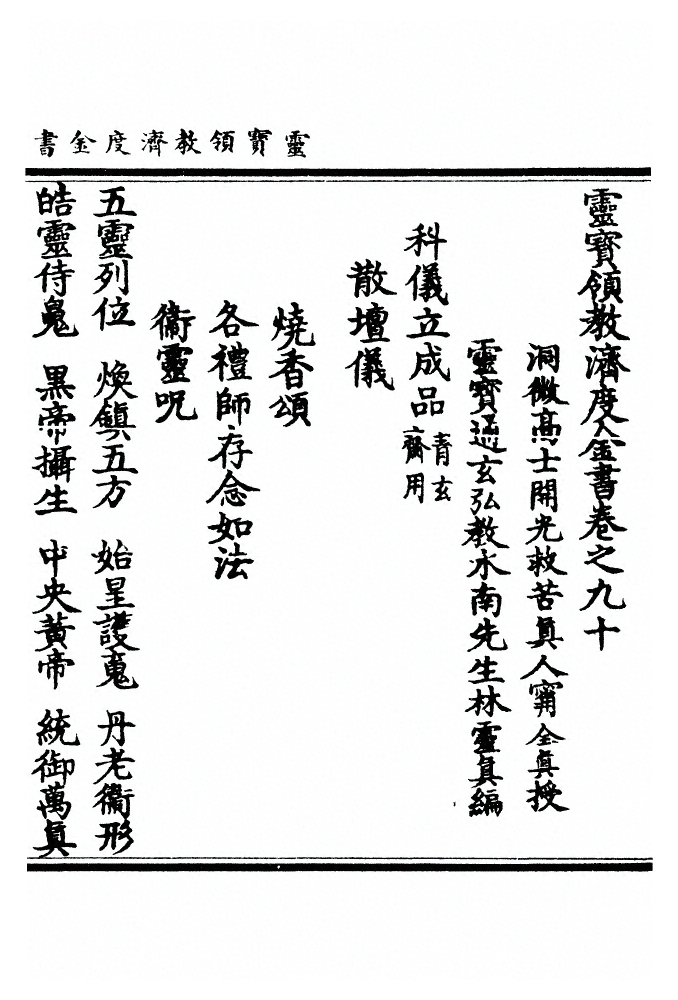 靈寶領教濟度金書
靈寶領教濟度金書卷之九十
洞微髙士開光救苦眞人甯全眞授
靈寶通玄弘教水南先生林靈眞編
科儀立成品青玄齋用
散壇儀
燒香頌
各禮師存念如法
衞靈呪
五靈列位　煥鎮五方　始星護䰟　丹老衞形
皓靈侍鬼　黒帝攝生　中央黃帝　統御萬眞